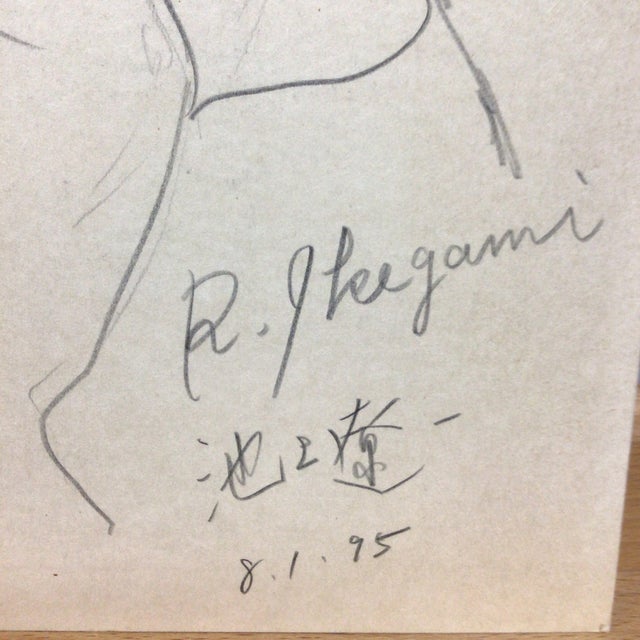 R. Ikegami
池上遼一
8.1.95